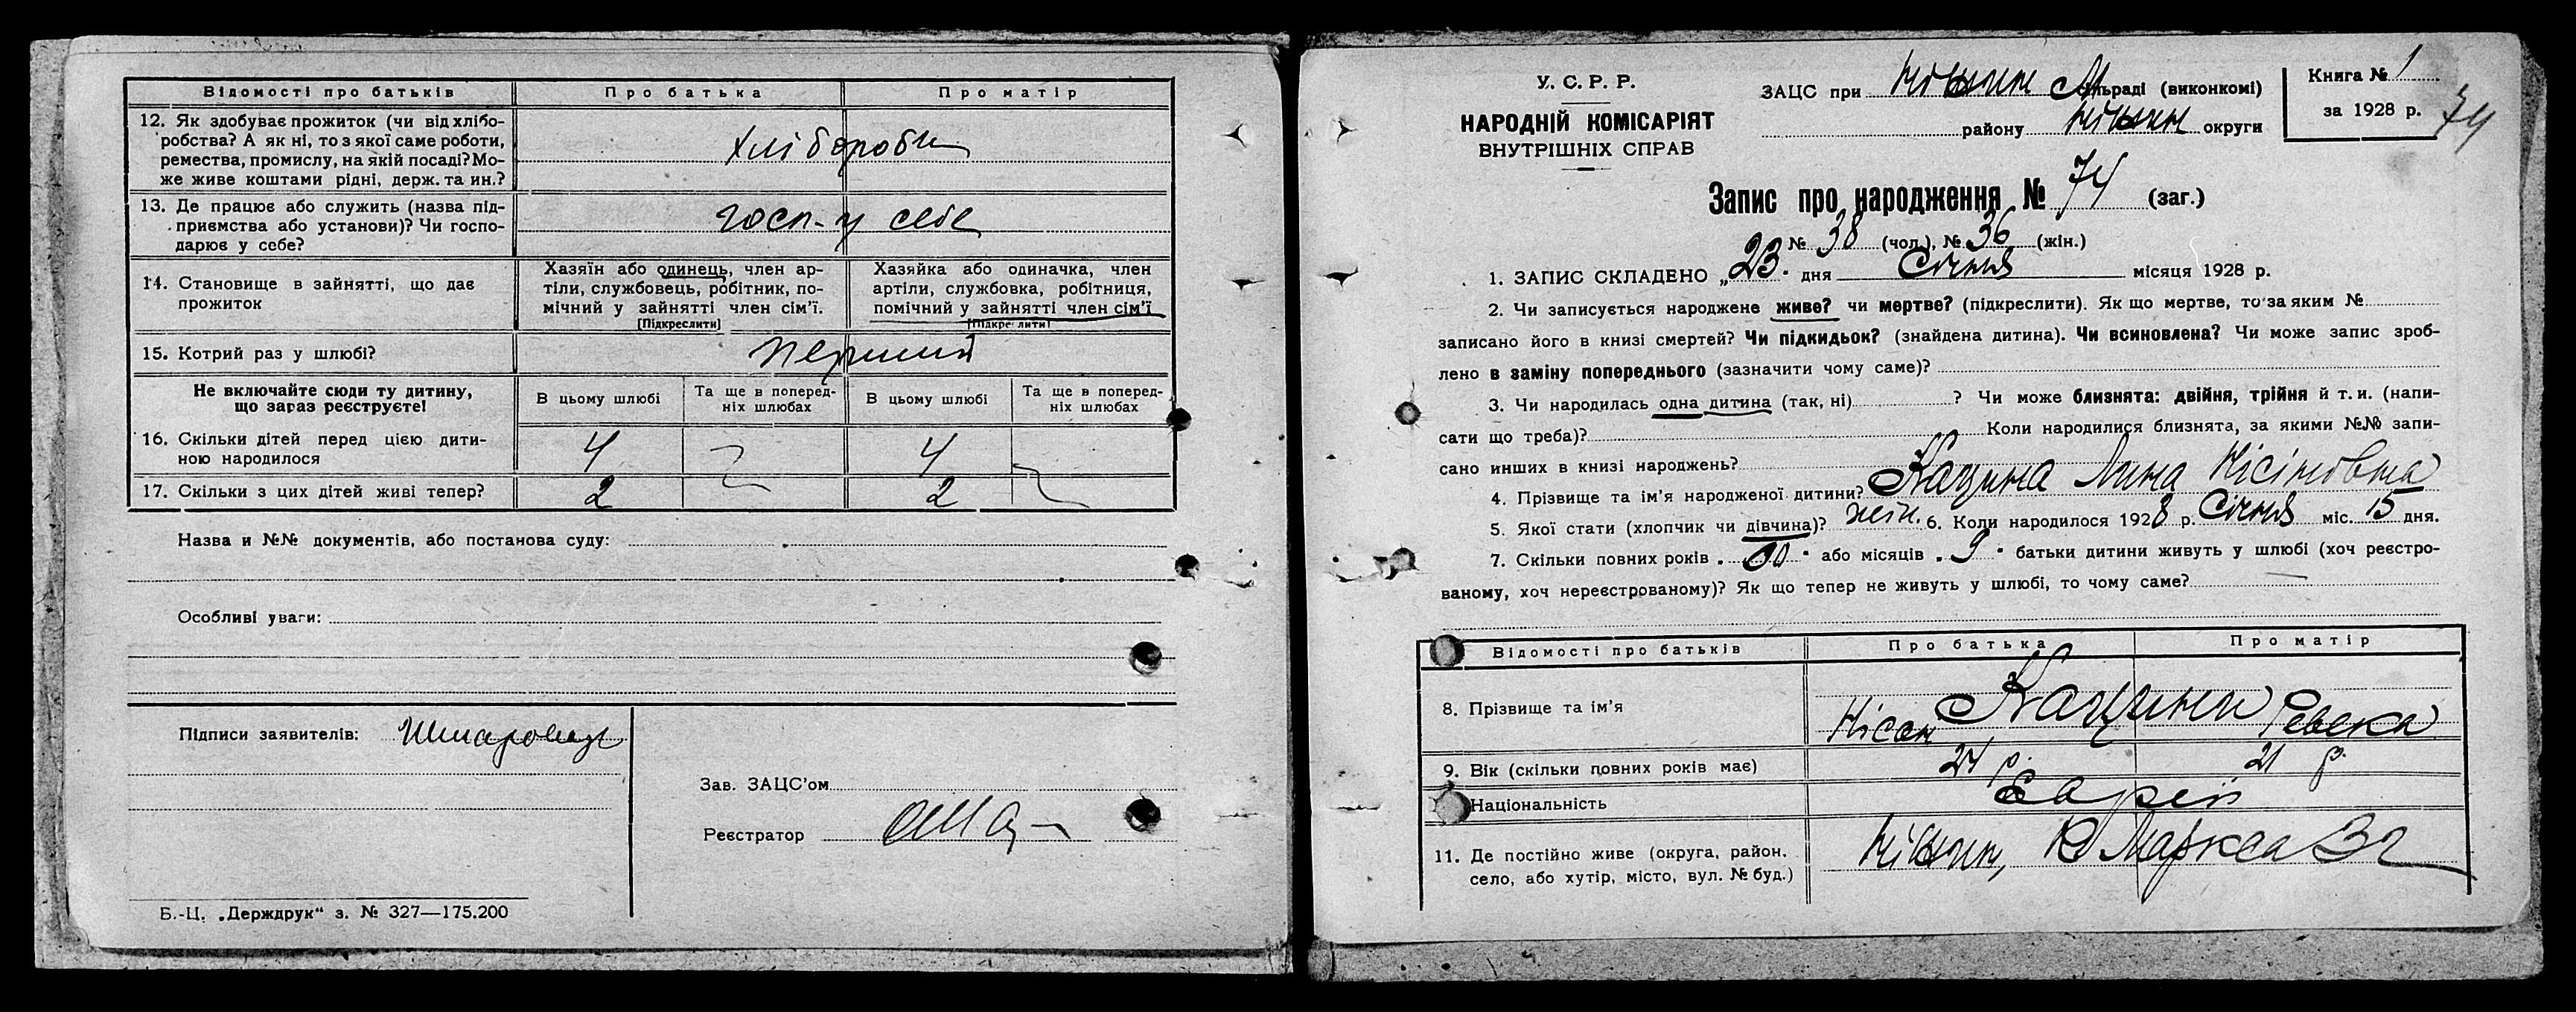 Відомості про батьків Про батька Про матір
12. Як здобуває прожиток (чи від хлібо-
робства? А як ні, то з якої саме роботи,
ремества, промислу, на якій посаді? Мо-
же живе коштами рідні, держ. та ин.?
хлібороби
13. Де працює або служить (назва під-
приємства або установи)? Чи госпо-
дарює у себе?
госп-у себе
14. Становище в зайнятті, що дає
прожиток
Хазяїн або одинець, член ар-
тіли, службовець, робітник, по-
мічний у зайнятті член сім'ї.
[Підкреслити]
Хазяйка або одиначка, член
артіли, службовка, робітниця,
помічний у зайнятті член сім'ї
[Підкреслити]
15. Котрий раз у шлюбі? перший
Не включайте сюди ту дитину,
що зараз реєструєте!
В цьому шлюбі
Та ще в поперед-
ніх шлюбах
В цьому шлюбі
Та ще в поперед-
ніх шлюбах
16. Скільки дітей перед цією дити-
ною народилося
4 4
17. Скільки з цих дітей живі тепер? 2 2
Назва и №№ документів, або постанова суду:
Особливі уваги:
Підписи заявителів:
Зав. ЗАЦС'ом
Реєстратор
Б.-Ц. „Держдрук“ з. № 327—175.200
У. С. Р. Р.
НАРОДНІЙ КОМІСАРІЯТ
ВНУТРІШНІХ СПРАВ
ЗАЦС при Ніжин М ьраді (виконкомі)
району Ніжин округи
Книга № 1
за 1928 р.
74
Запис про народження № 74 (заг.)
№ 38 (чол.), № 36 (жін.)
1. ЗАПИС СКЛАДЕНО „23. дня Січня місяця 1928 р.
2. Чи записується народжене живе? чи мертве? (підкреслити). Як що мертве, то за яким №
записано його в книзі смертей? Чи підкидьок? (знайдена дитина). Чи всиновлена? Чи може запис зроб-
лено в заміну попереднього (зазначити чому саме)?
3. Чи народилась одна дитина (так, ні) ? Чи може близнята: двійня, трійня й т. и. (напи-
сати що треба)? Коли народилися близнята, за якими №№ запи-
сано инших в книзі народжень?
4. Прізвище та ім'я народженої дитини? Кацина Лина Нісіновна
5. Якої стати (хлопчик чи дівчина)? жін. 6. Коли народилося 1928 р. Січня міс. 15 дня.
7. Скільки повних років „00“ або місяців „9“ батьки дитини живуть у шлюбі (хоч реєстро-
ваному, хоч нереєстрованому)? Як що тепер не живуть у шлюбі, то чому саме?
Відомості про батьків Про батька Про матір
8. Прізвище та ім'я Кацини
Нісан Ревека
9. Вік (скільки повних років має) 24 р. 21 р.
Національність Євреї
11. Де постійно живе (округа, район,
село, або хутір, місто, вул. № буд.)
Ніжин, К Маркса 32